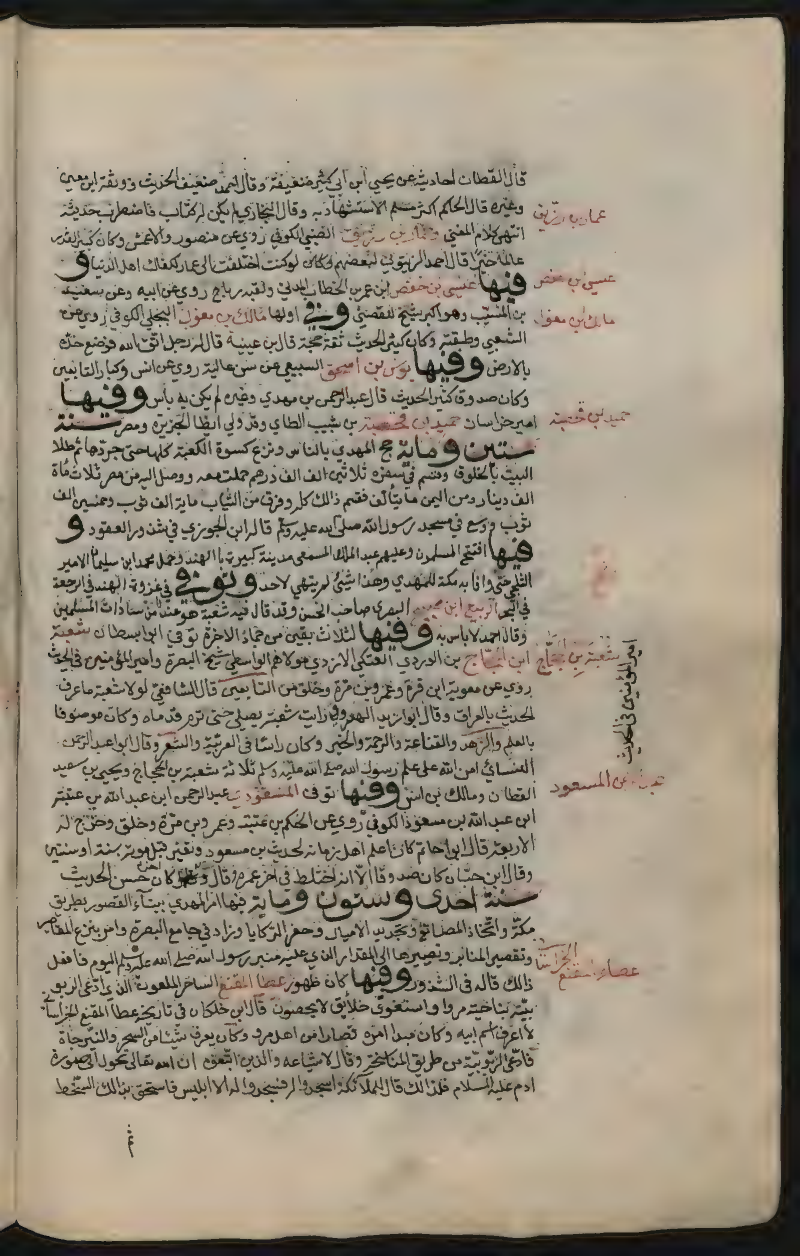 قال القطان احاديثه عن يحيى ابن ابي كثير ضعيفة وقال احمد ضعيف الحديث ووثقه ابن معين
وغيره قال الحاكم اكثر مسلم الاستشهاد به وقال البخاري لم يكن له كتاب فاضطرب حديثه
عمار بن رزيق
انتهى كلام المغني وعمار بن رزيق الضبي الكوفي روى عن منصور والاعمش وكان كبير القدر
عالما خيرا قال احمد الزبيري لبعضهم وكان لو كنت اختلفت الى عمار لكفاك اهل الدنيا و
عيسى ابن حفص
فيها عيسى بن حفص ابن عمر بن الخطاب المدني ولقبه رباح روى عن ابيه وعن سعيد
بن المسيب وهو اكبر شيخ للقعنبي وفي اولها مالك بن مغول البجلي الكوفي روى عن
مالك بن مغول
الشعبي وطبقته وكان كثير الحديث ثقة حجة قال بن عيينة قال له رجل اتق الله فوضع خده
بالارض وفيها يونس بن اسحق السبيعي عن سن عالية روى عن انس وكبار التابعين
وكان صدوق كثير الحديث قال عبد الرحمن بن مهدي وغيره لم يكن به باس وفيها
حميد بن قحطبة
امير خراسان حميد ابن قحطبة بن شبيب الطاي وقد ولي ايظا الجزيره ومصر سنة
ستين وماية حج المهدي بالناس ونزع كسوة الكعبة كلها حتى جردها ثم طلا
البيت بالخلوق وقسم في سفره ثلاثين الف الف درهم حملت معه ووصل اليه من مصر ثلاث ماة
الف دينار ومن اليمن مايتا الف فقسم ذالك كله وفرق من الثياب ماية الف ثوب وخمسين الف
ثوب ووسع في مسجد رسول الله صلى الله عليه وسلم قاله ابن الجوزي في شذور العقود و
فيها افتتح المسلمون وعليهم عبد الملك المسمعي مدينة كبيرة با الهند وحمل محمد ابن سليمان الامير
الثلج حتى وافا به مكة للمهدي وهذا شيئ لم يتهي لاحد وتوفي في غزوة الهند في الرجعة
في البحر الربيع ابن صبيح البصري صاحب الحسن وقد قال فيه شعبة هو عندي من سادات المسلمين
وقال احمد لا باس به وفيها لثلاث بقين من جماد الاخرة توفي ابو بسطام شعبة
شعبة بن الحجاج
امير المؤمنين في الحديث
ابن الحجاج بن الورد العتكي الازدي مولاهم الواسطي شيخ البصرة وامير المؤمنين في الحديث
روى عن معوية ابن قرة وعمرو بن مرة وخلق من التابعين قال الشافعي لولا شعبة ما عرف
الحديث بالعراق وقال ابو زيد الهروي رايت شعبة يصلي حتى ترم قدماه وكان موصوفا
بالعلم والزهد والقناعة والرحمة والخير وكان راسا في العربية والشعر وقال ابو عبد الرحمن
النسائي امن الله على علم رسول الله صلى الله عليه وسلم ثلاثة شعبة بن الحجاج ويحيى بن سعيد
القطان ومالك بن انس وفيها توفي المسعودي عبد الرحمن ابن عبد الله بن عتبة
المسعود
ابن عبد الله بن مسعود الكوفي روى عن الحكم بن عتبة وعمرو بن مرة وخلق وخرج له
الاربعة قال ابو حاتم كان اعلم اهل زمانه لحديث بن مسعود وتغير قبل موته بسنة او سنتين
وقال ابن حبان كان صدوقا الا انه اختلط في اخر عمره وقال كان حسن الحديث
سنة احدى وستون وماية فيها امر المهدي ببناء القصور بطريق
مكة واتخاذ المصانع وتجديد الاميال وحفر الركايا وزاد في جامع البصرة وامر بنزع المقاصر
وتقصير المنابر وتصييرها الى المقدار الذي عليه منبر رسول الله صلى الله عليه وسلم اليوم فافعل
عطاء المقنع الخراساني
ذالك قاله في الشذور وفيها كان ظهور عطا المقنع الساحر الملعون الذي ادعى الربو
بية بناحيته مروا واستغوى خلايق لا يحصون قال ابن خلكان في تاريخه عطا المقنع الخراساني
لا اعرف اسم ابيه وكان مبدا امره قصارا من اهل مرو وكان يعرف شيئا من السحر والنيرجاة
فادعى الربوبية من طريق المناسخ وقال لاشياعه والذين اتبعوه ان الله تعالى تحول الى صورة
ادم عليه السلام فلذالك قال الملائكة اسجدوا له فسجدوا له الا ابليس فاستحق بذالك السخط
ثم